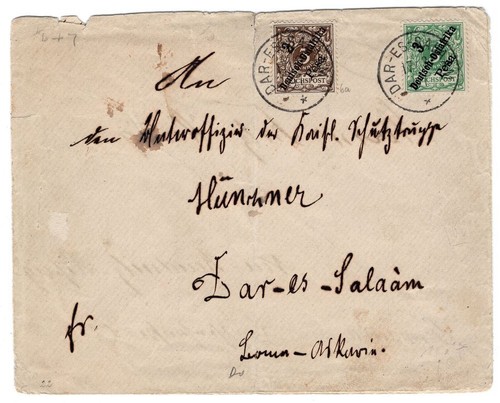 DAR-ES
DAR-ES
2 Deutsch-Ostafrika Pesa
REICHSPOST
3 Deutsch-Ostafrika Pesa
REICHSPOST
An
den Unteroffizier der Kaisl. Schutztruppe
Münchner
Dar-es-Salaàm
fr.
Boma-Askarie.